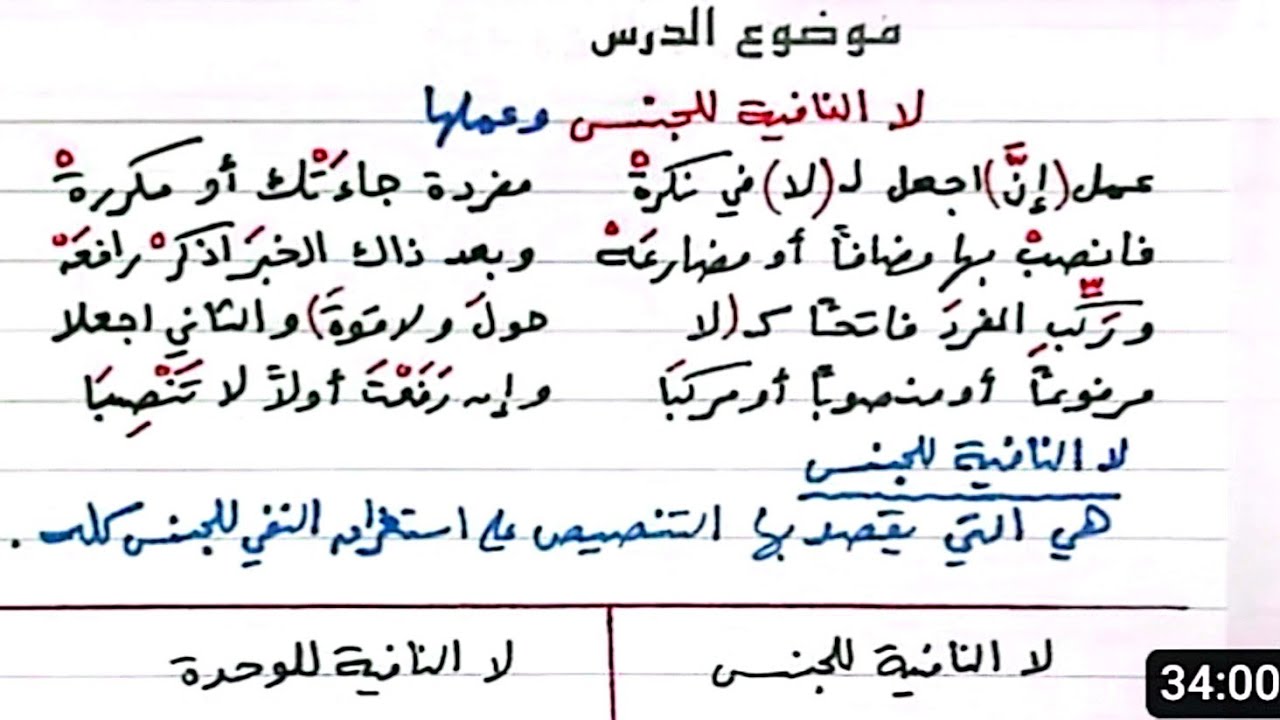 موضوع الدرس
لا النافية للجنس وعملها
عمل (إنَّ) اجعل لـ (لا) في نكرهْ مفردة جاءَتْك أو مكررهْ
فانصبْ بها مضافاً أو مضارعَهْ وبعد ذاك الخبرَ اذكرْ رافعَهْ
وركِّبِ المفردَ فاتحًا كـ (لا حولَ ولا قوةَ) والثاني اجعلا
مرفوعًا أو منصوبًا أو مركبَا وإن رَفَعْتَ أولاً لا تَنْصِبَا
لا النافية للجنس
هي التي يقصد بها التنصيص على استغراق النفي للجنس كله .
لا النافية للجنس لا النافية للوحدة
34:00